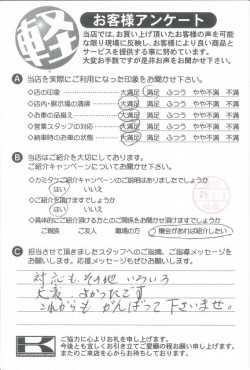 軽
お客様アンケート
当店では、お買い上げ頂いたお客様の声を可能
な限り現場に反映し、お客様により良い商品と
サービスを提供する事に努めています。
大変お手数ですが是非お声をお聞かせ下さい。
A 当店を実際にご利用になった印象をお聞かせ下さい。
◇店の印象 大満足 満足 ふつう やや不満 不満
◇店内・展示場の清掃 大満足 満足 ふつう やや不満 不満
◇お車の品揃え 大満足 満足 ふつう やや不満 不満
◇営業スタッフの対応 大満足 満足 ふつう やや不満 不満
◇納車時のお車の状態 大満足 満足 ふつう やや不満 不満
B 当店はご紹介を大切にしております。
ご紹介キャンペーンについてお聞かせ下さい。
◇カミタケご紹介キャンペーンのご説明はありましたでしょうか
はい いいえ
◇ご紹介を頂けますでしょうか
はい いいえ
◇具体的にご紹介頂ける方とのご関係をお聞かせ頂けますでしょうか
ご親族 ご友人 職場の方 機会があれば紹介したい
C 担当させて頂きましたスタッフへのご指導、ご指導メッセージを
お願いします。応援メッセージもぜひお願いします。
対応も、その他 いろいろ
大変、よかったです
これからも がんばって下さいませ。
K
ご協力に心よりお礼を申し上げます。
今後とも宜しくお引き立てご愛顧の程お願い申し上げます。
またのご来店を心からお待ちしております。